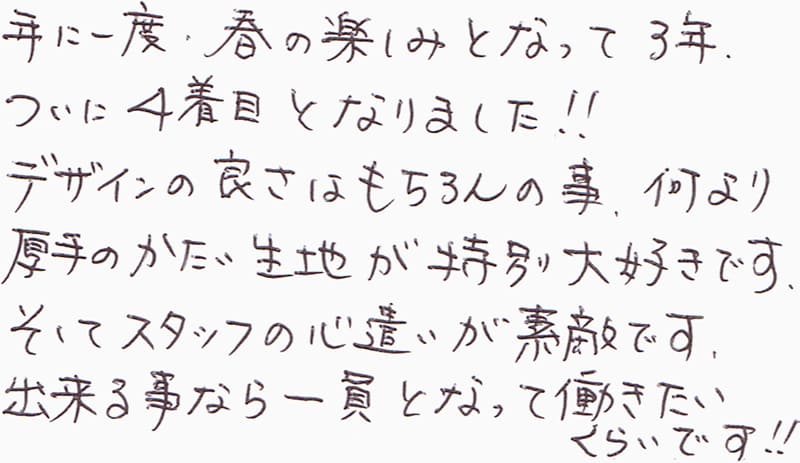 年に一度、春の楽しみとなって3年、
ついに4着目となりました!!
デザインの良さはもちろんの事、何より
厚手のかたい生地が特別大好きです。
そしてスタッフの心遣いが素敵です。
出来る事なら一員となって働きたい
くらいです!!